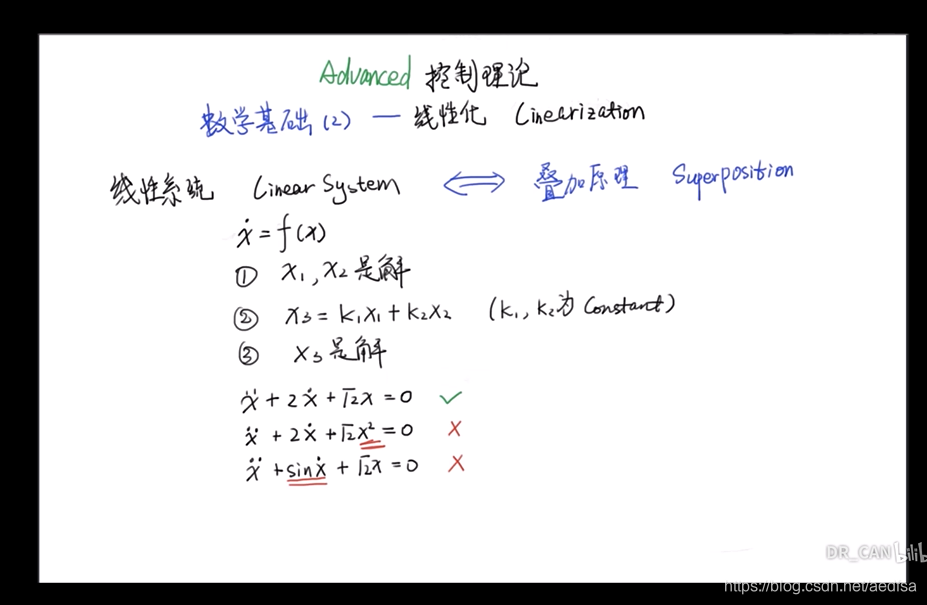 Advanced 控制理论
数学基础(2) — 线性化 Linearization
线性系统 Linear System ⟺ 叠加原理 Superposition
ẋ = f(x)
① x₁, x₂ 是解
② x₃ = k₁x₁ + k₂x₂ (k₁, k₂为 Constant)
③ x₃ 是解
ẍ + 2ẋ + √2x = 0 ✓
ẍ + 2ẋ + √2x² = 0 ×
ẍ + sinẋ + √2x = 0 ×
DR_CAN bilib
https://blog.csdn.net/aedisa